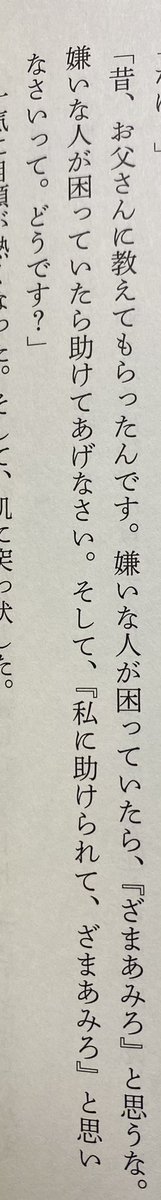 「昔、お父さんに教えてもらったんです。嫌いな人が困っていたら、『ざまあみろ』と思うな。
嫌いな人が困っていたら助けてあげなさい。そして、『私に助けられて、ざまあみろ』と思い
なさいって。どうです?」